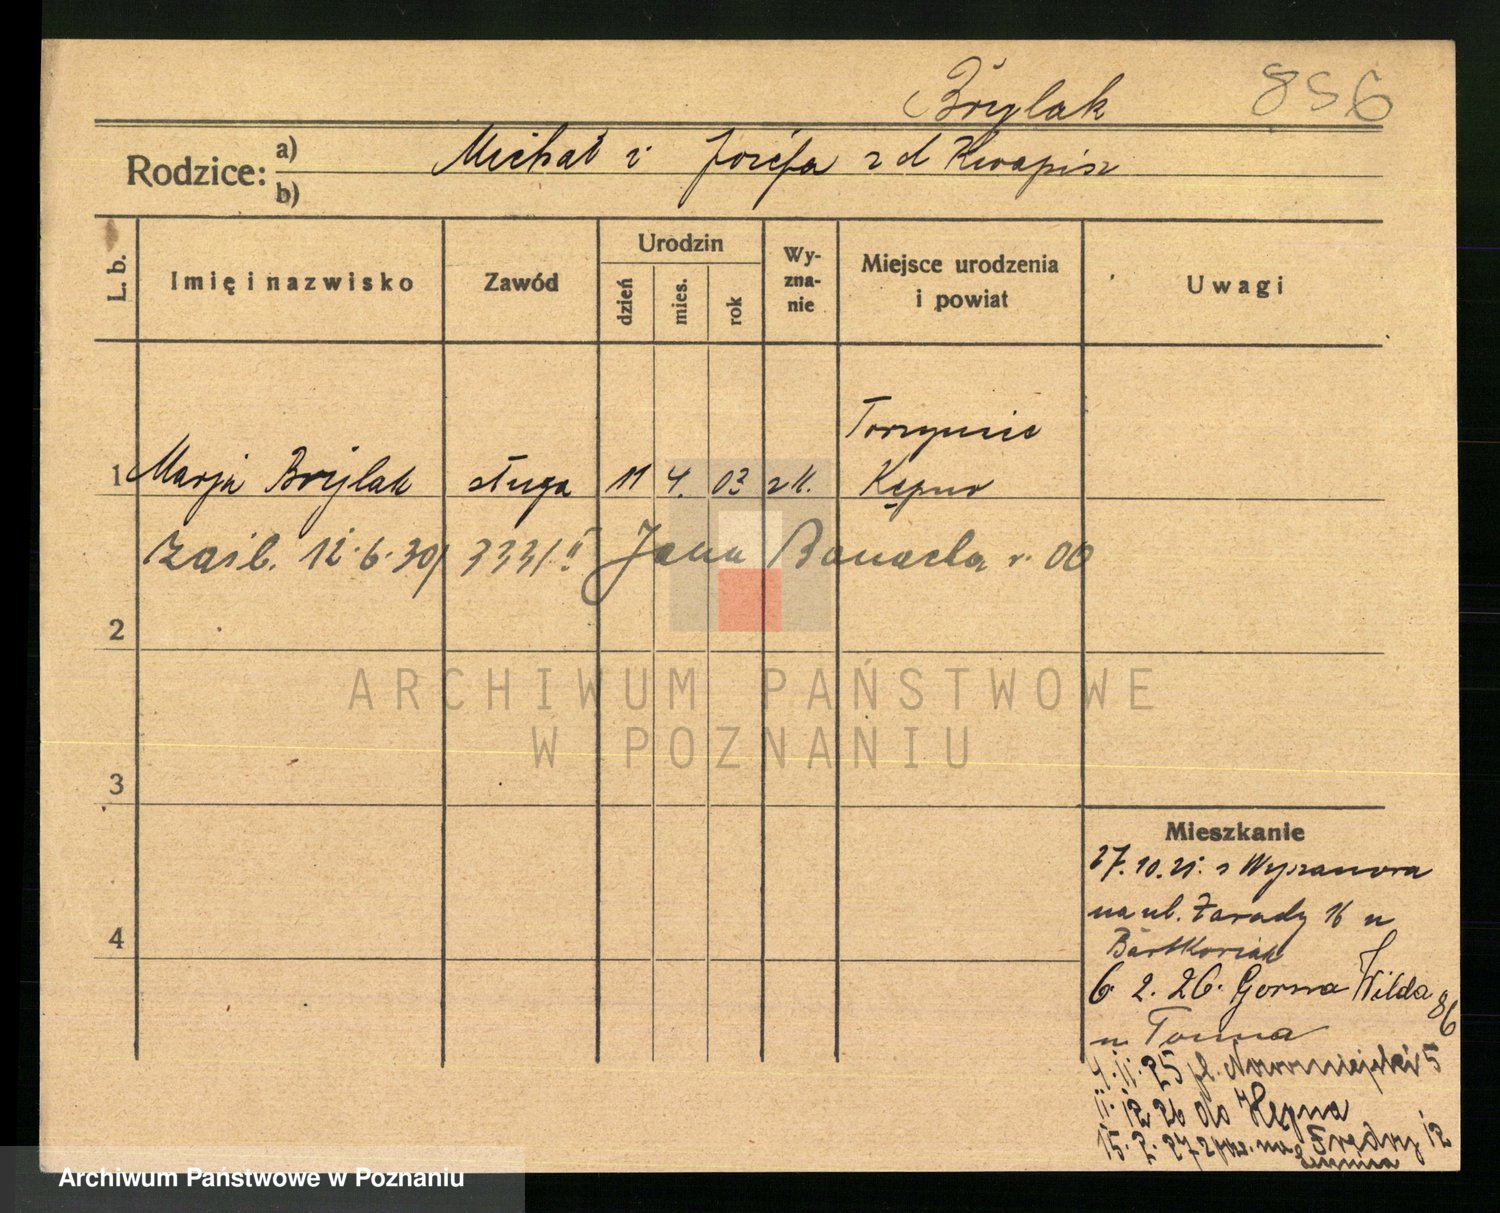 Brylak 856
Rodzice: a) Michał i Józefa z d Kwapisz
b)
L. b.
Imię i nazwisko
Zawód
Urodzin
dzień
mies.
rok
Wy-
zna-
nie
Miejsce urodzenia
i powiat
Uwagi
Torzyniec
1 Marja Bryjlak sługa 11 4. 03 rk. Kępno
12.6.30 333/II Jana r. 00
2
ARCHIWUM PAŃSTWOWE
W POZNANIU
3
Mieszkanie
27.10.25. z Wyszanowa
na ul. 16 u
4
Bartkowiak
6. 2. 26. Gorna Wilda 86
u Toma
4.11.25 pl. Nowomiejski 5
11.12 26 do Kępna
15. 2. 27 na Fredry 12
Archiwum Państwowe w Poznaniu